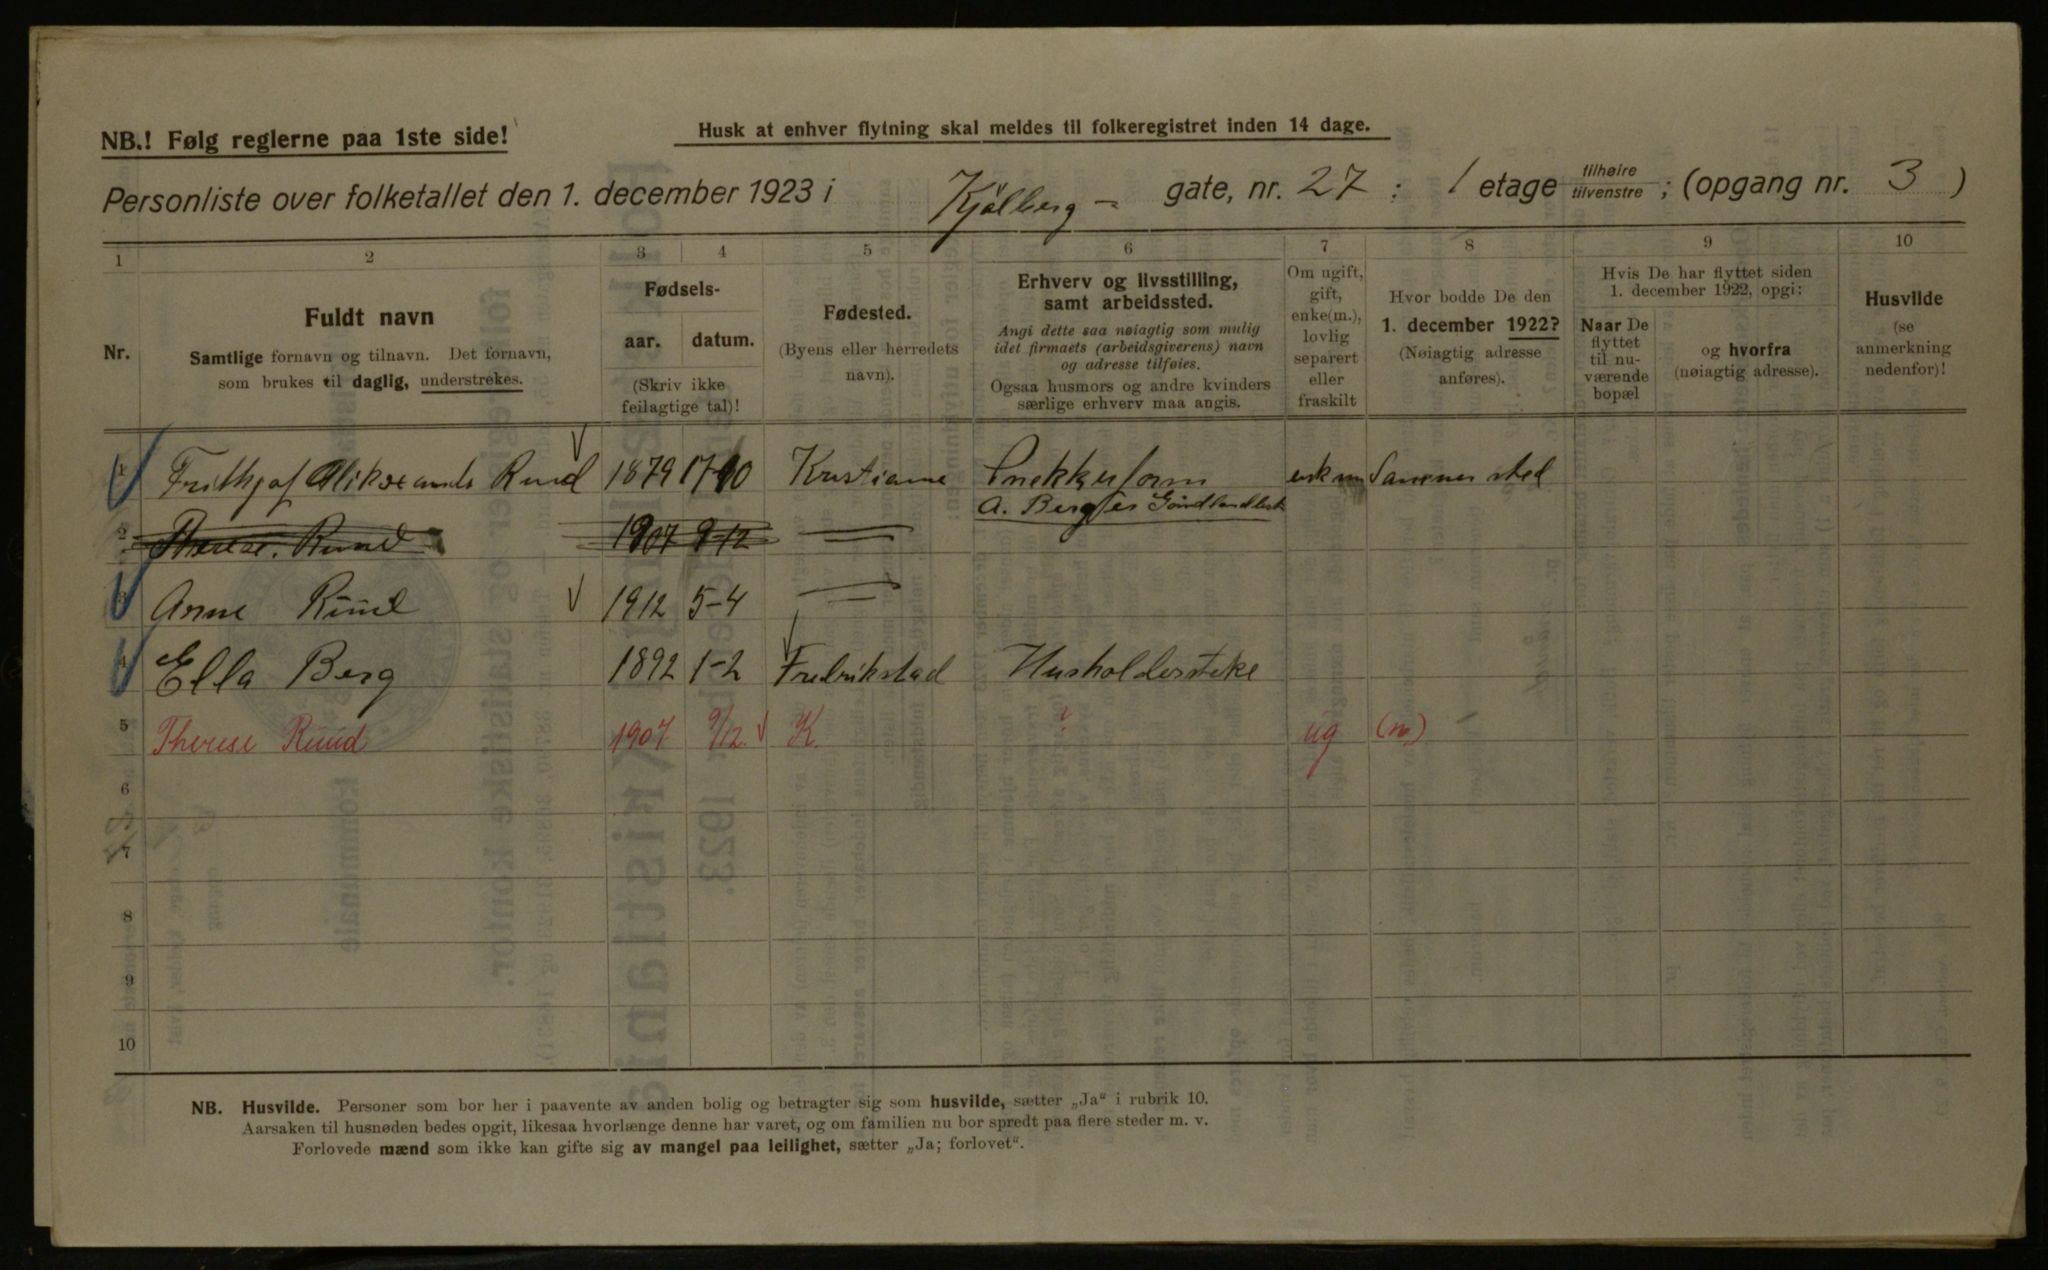 NB.! Følg reglerne paa 1ste side!
Husk at enhver flytning skal meldes til folkeregistret inden 14 dage.
Personliste over folketallet den 1. december 1923 i Kjølberg - gate, nr. 27 : 1 etage tilhøire tilvenstre ; (opgang nr. 3 )
1 2 3 4 5 6 7 8 9 10
Nr.
Fuldt navn
Samtlige fornavn og tilnavn. Det fornavn,
som brukes til daglig, understrekes.
Fødsels-
aar. datum.
(Skriv ikke
feilagtige tal)!
Fødested.
(Byens eller herredets
navn).
Erhverv og livsstilling,
samt arbeidssted.
Angi dette saa nøiagtig som mulig
idet firmaets (arbeidsgiverens) navn
og adresse tilføies.
Ogsaa husmors og andre kvinders
særlige erhverv maa angis.
Om ugift,
gift,
enke(m.),
lovlig
separert
eller
fraskilt
Hvor bodde De den
1. december 1922?
(Nøiagtig adresse
anføres).
Hvis De har flyttet siden
1. december 1922, opgi:
Naar De
flyttet
til nu-
værende
bopæl
og hvorfra
(nøiagtig adresse).
Husvilde
(se
anmerkning
nedenfor)!
1 Frithjof Ruud 1879 17-10 Kristiania enkem Sammested
A. Berg
2 Therese Ruud 1907 9-12 —
3 Anne Ruud 1912 5-4 —
4 Ella Berg 1892 1-2 Fredrikstad Husholderske
5 Therese Ruud 1907 9/12 K. ? ug (m)
6
7
8
9
10
NB. Husvilde. Personer som bor her i paavente av anden bolig og betragter sig som husvilde, sætter „Ja" i rubrik 10.
Aarsaken til husnøden bedes opgit, likesaa hvorlænge denne har varet, og om familien nu bor spredt paa flere steder m. v.
Forlovede mænd som ikke kan gifte sig av mangel paa leilighet, sætter „Ja; forlovet".